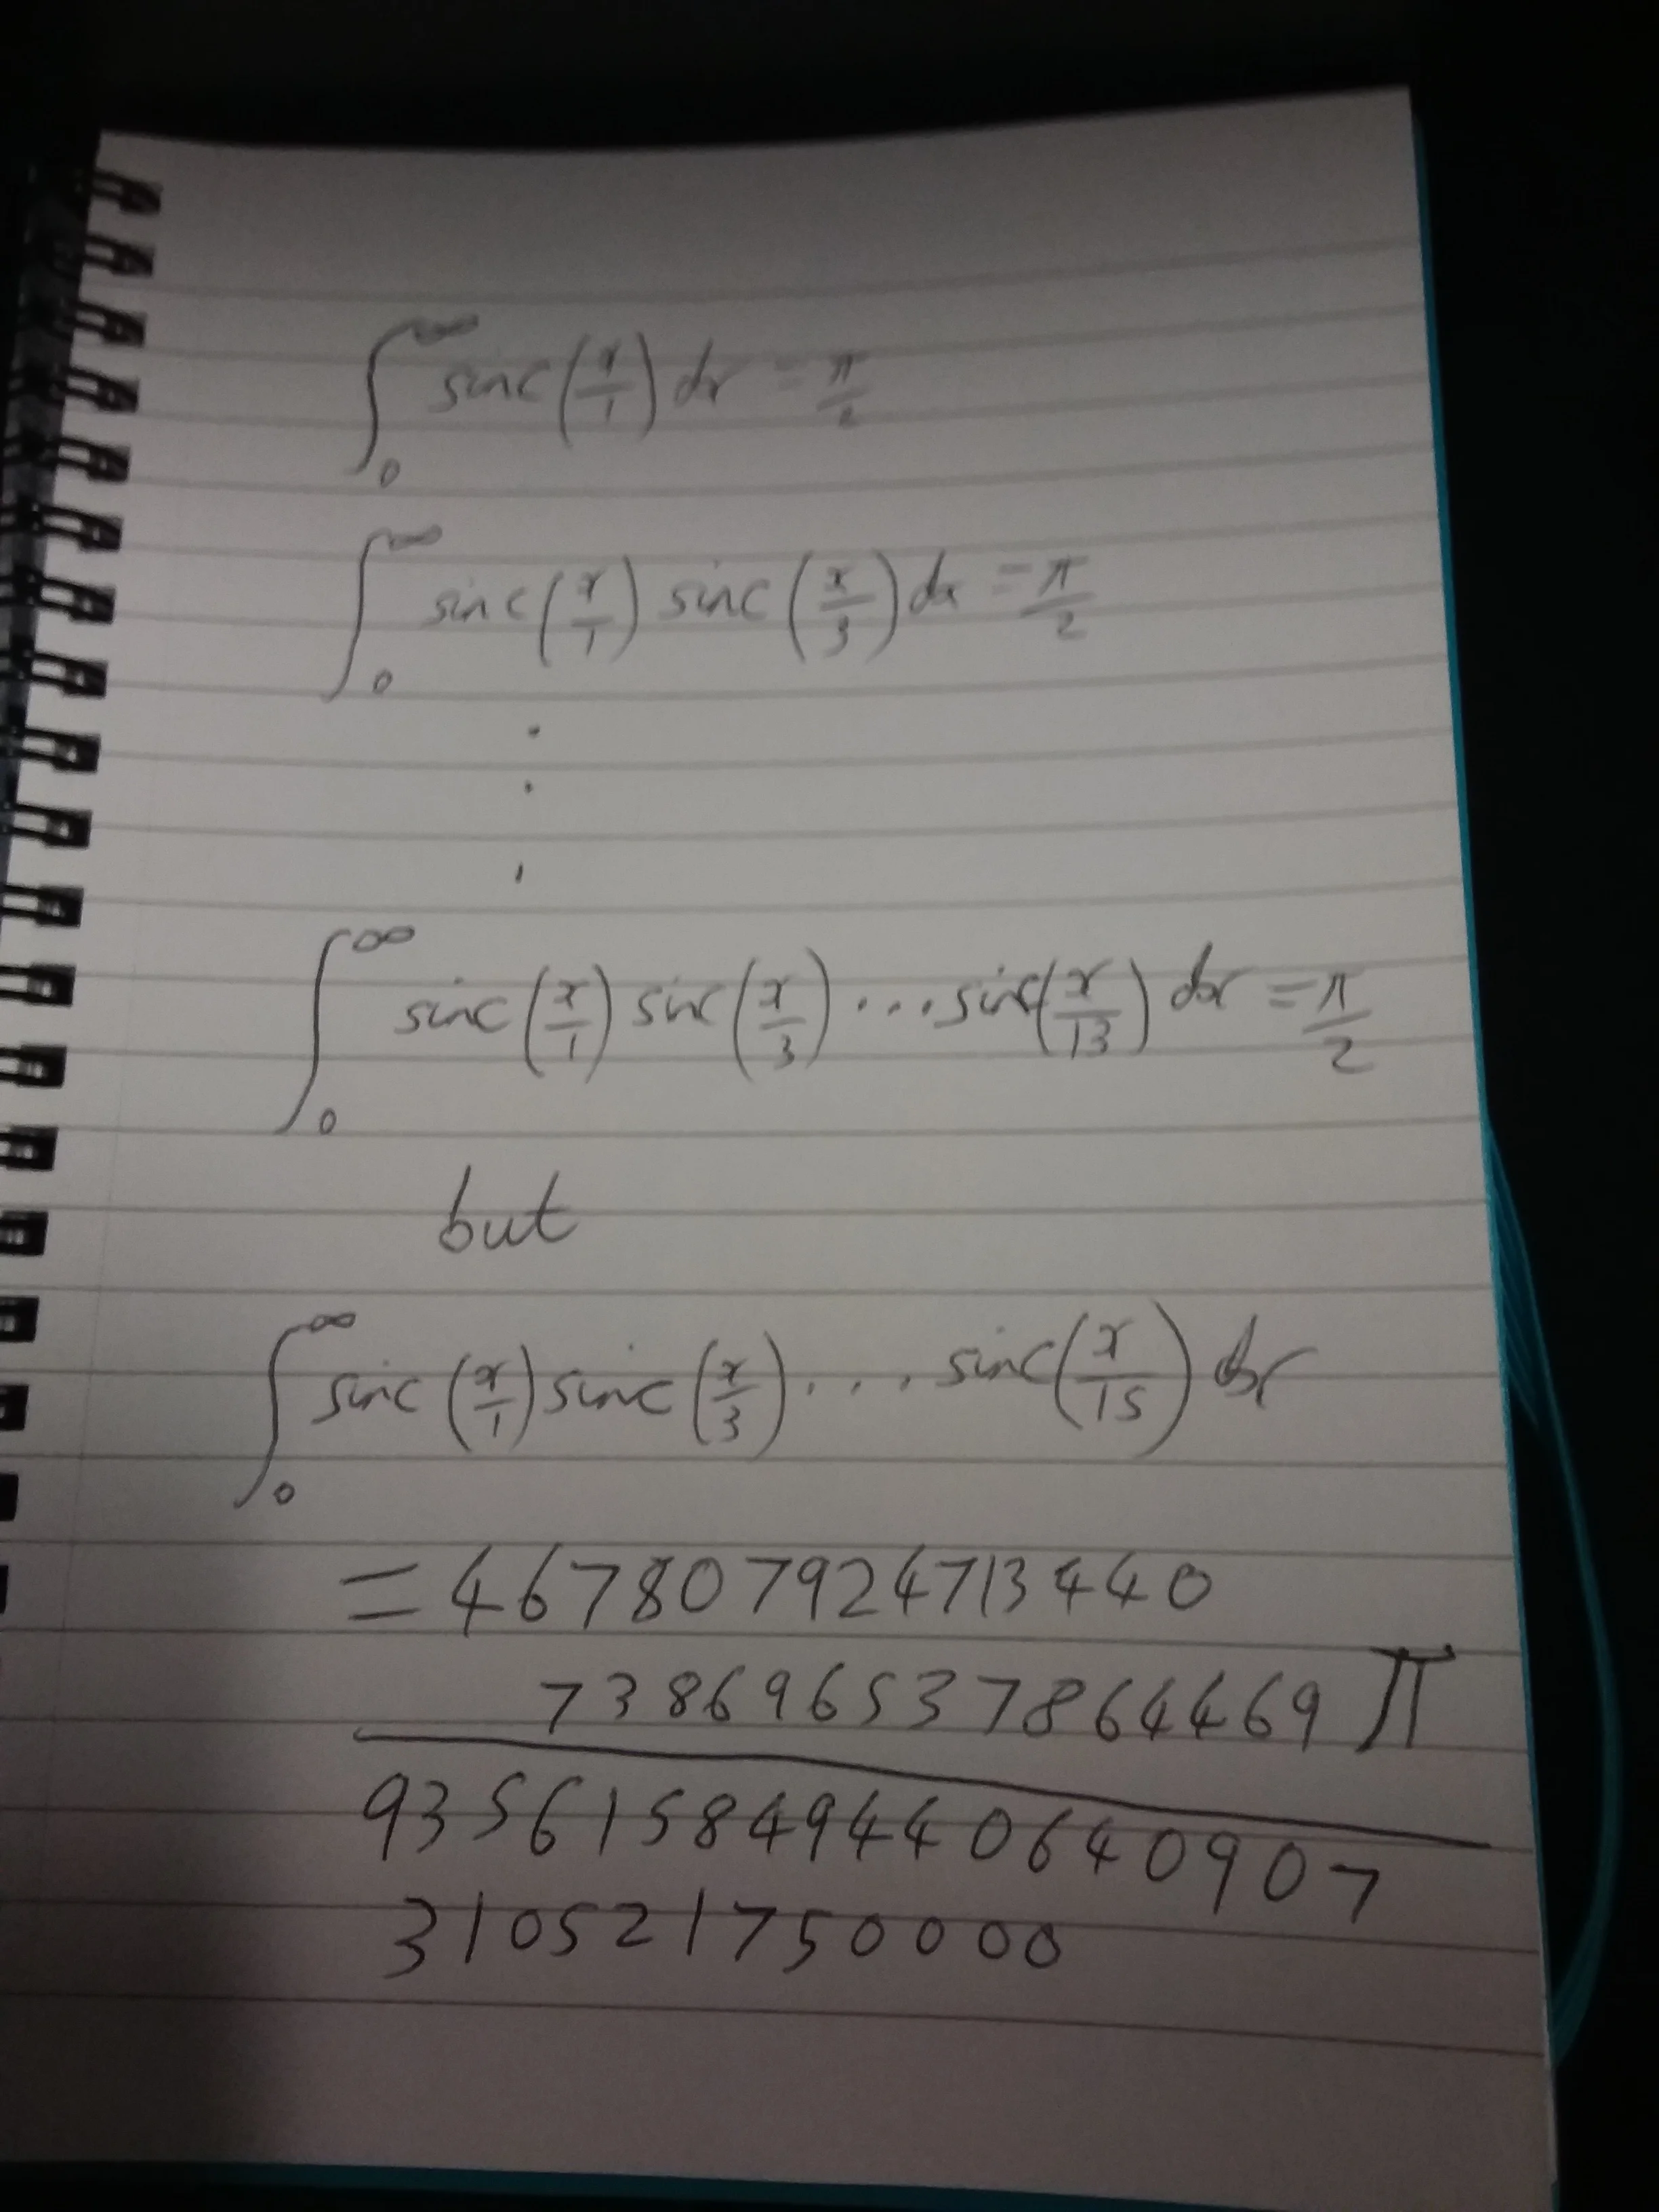 ∫₀^∞ sinc(x/1) dx = π/2
∫₀^∞ sinc(x/1) sinc(x/3) dx = π/2
.
.
.
∫₀^∞ sinc(x/1) sinc(x/3) ... sinc(x/13) dx = π/2
but
∫₀^∞ sinc(x/1) sinc(x/3) ... sinc(x/15) dx
= 467807924713440
738696537864469 π
935615849440640907
310521750000